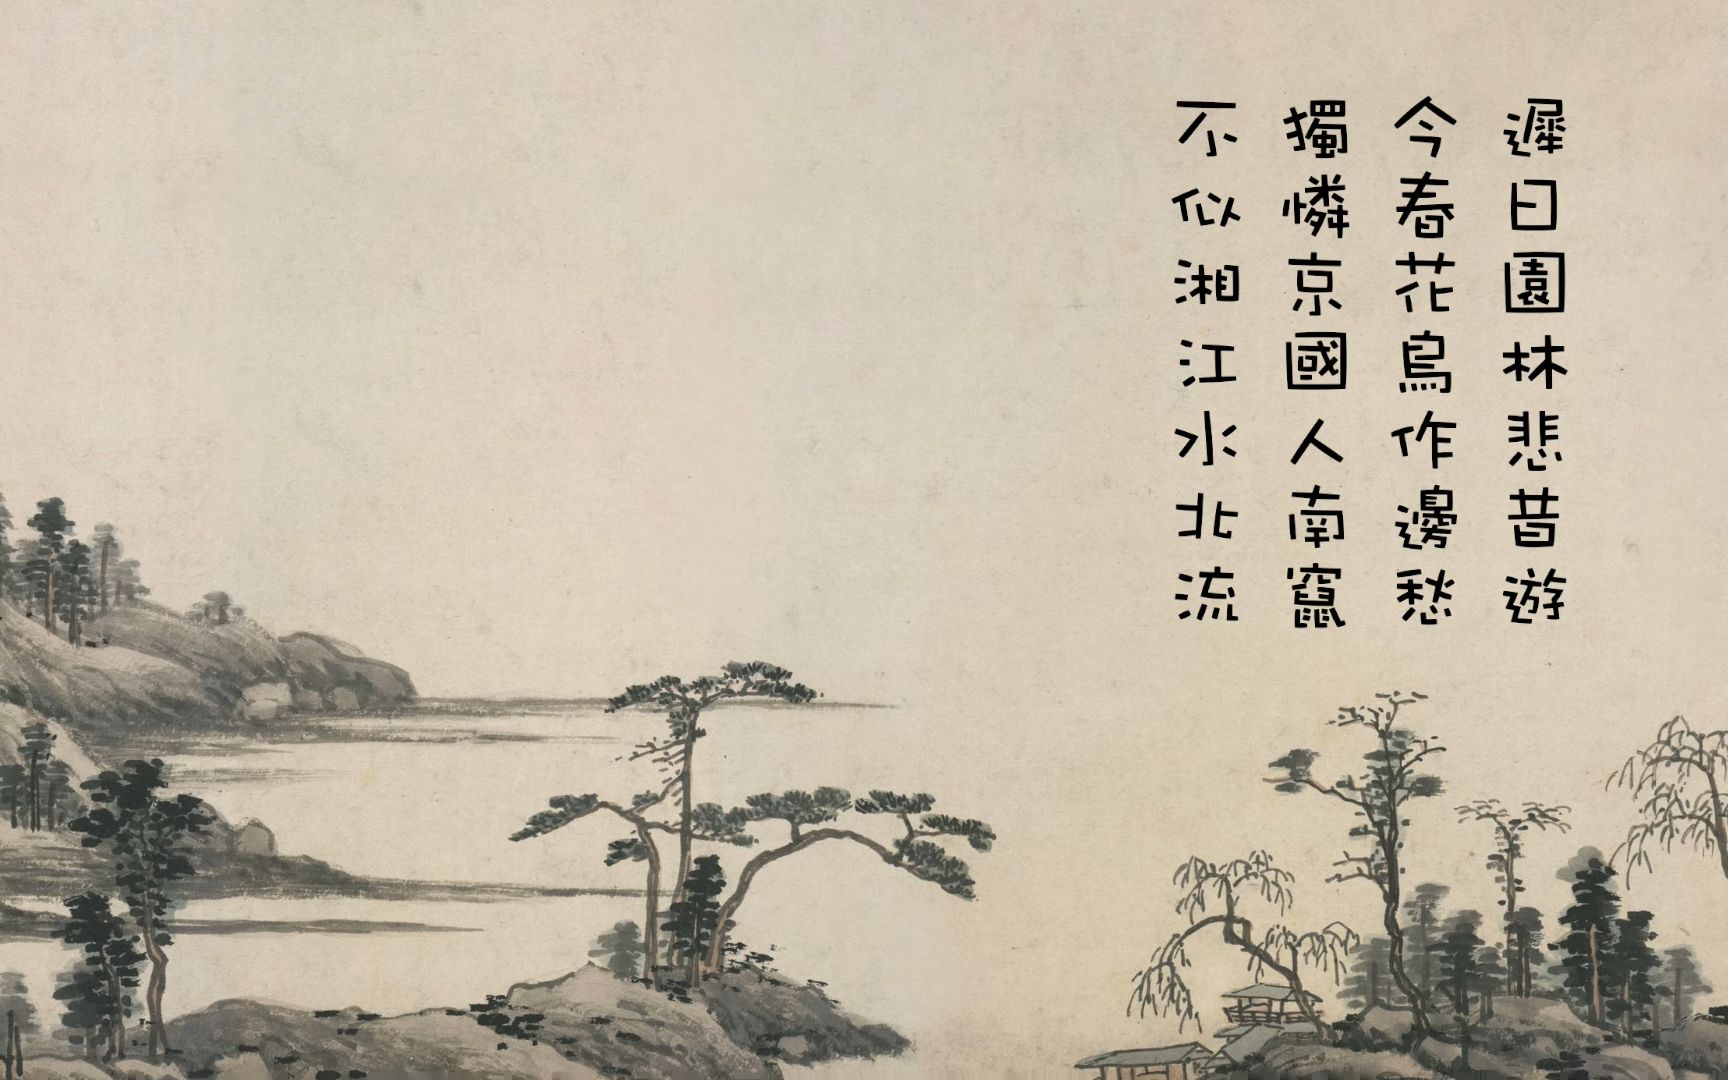 遲日園林悲昔遊
今春花鳥作邊愁
獨憐京國人南竄
不似湘江水北流